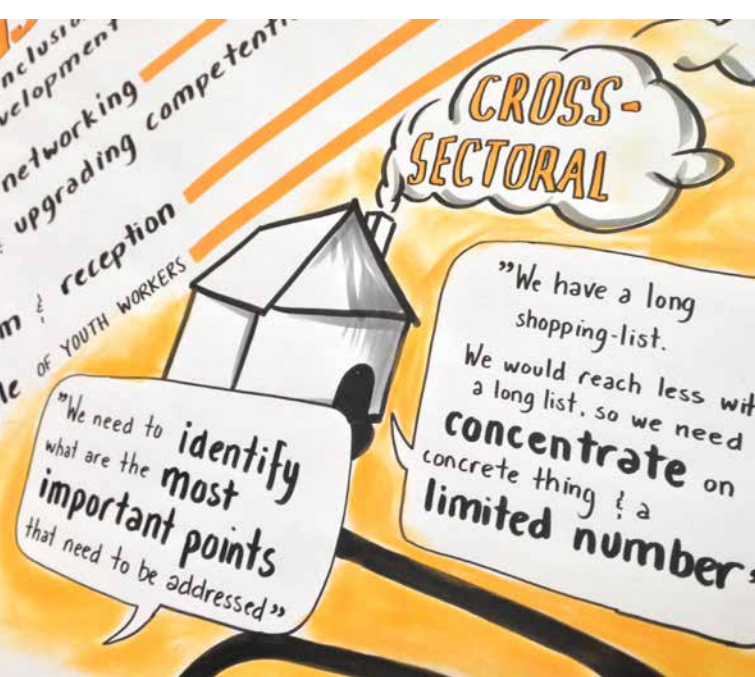 networking
upgrading competenti
& reception
OF YOUTH WORKERS
CROSS-
SECTORAL
"We have a long
shopping-list.
We would reach less wit
a long list, so we need
concentrate on
concrete thing & a
limited number"
"We need to identify
what are the most
important points
that need to be addressed"